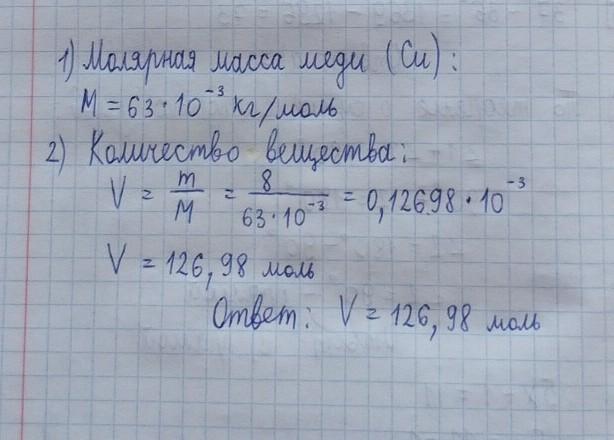 1) Молярная масса меди (Cu):
M = 63 · 10⁻³ кг/моль
2) Количество вещества:
V = m/M = 8/(63 · 10⁻³) = 0,12698 · 10⁻³
V = 126,98 моль
Ответ: V = 126,98 моль